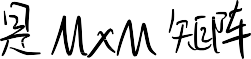 是 M×M 矩阵